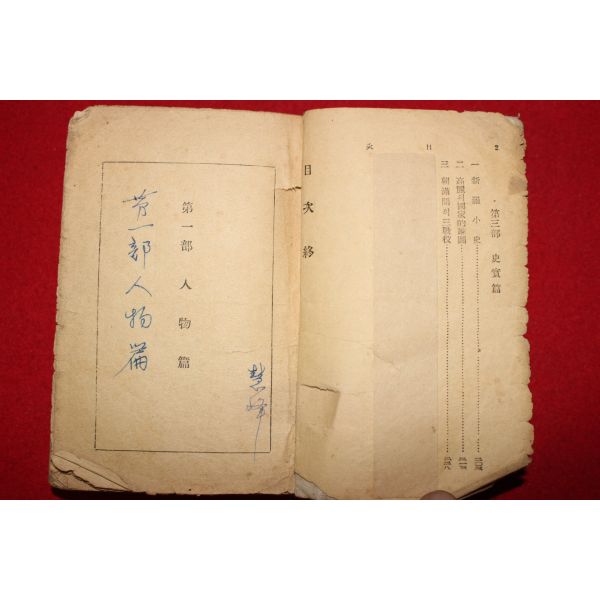 2 目 次
第三部 史實篇
一 新羅小史
二 高麗의國家的
三 朝滿間의三戰役
目次終
慧峰
第一部 人物篇
第一部人物篇